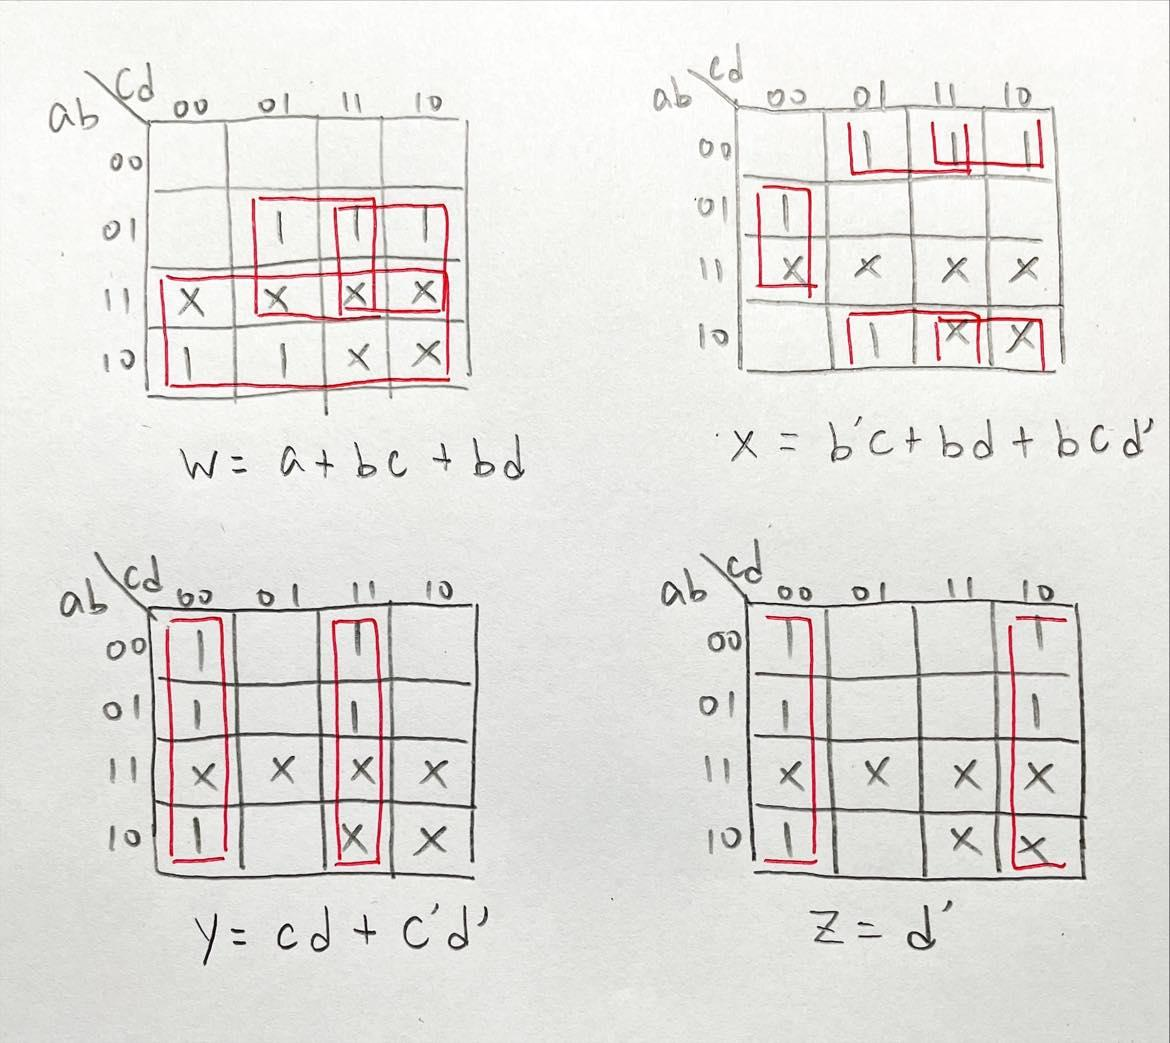 cd
ab 00 01 11 10
00
01 1 1 1
11 X X X X
10 1 1 X X
W = a + bc + bd
cd
ab 00 01 11 10
00 1 1 1
01 1
11 X X X X
10 1 X X
X = b'c + bd + bcd'
cd
ab 00 01 11 10
00 1 1
01 1 1
11 X X X X
10 1 X X
Y = cd + c'd'
cd
ab 00 01 11 10
00 1 1
01 1 1
11 X X X X
10 1 X X
Z = d'